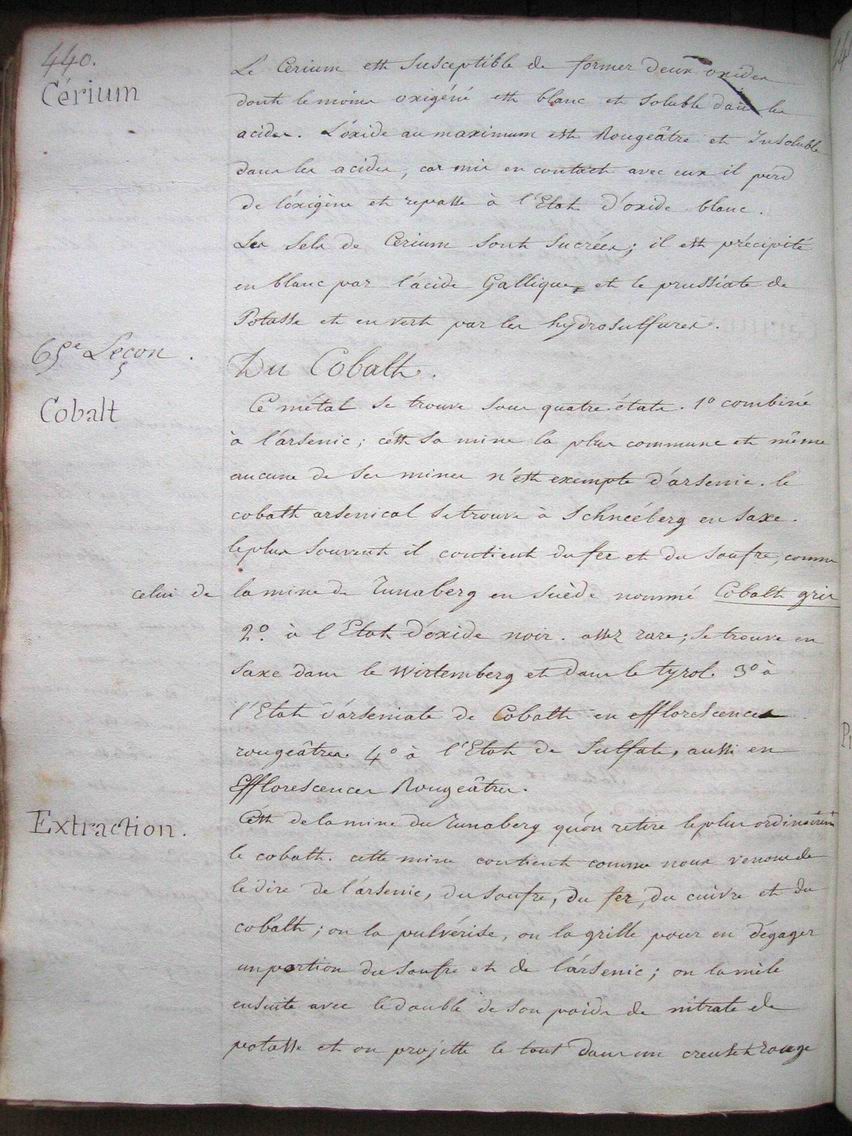 440.
Cérium
Le Cerium est susceptible de former deux oxides
dont le moins oxigéné est blanc et soluble dans les
acides. L'óxide au maximum est Rougeâtre et Insoluble
dans les acides, car mis en contact avec eux il perd
de l'óxigène et repasse à l'Etat d'oxide blanc.
Les Sels de Cerium sont sucrées; il est précipité
en blanc par l'ácide Gallique, et le prussiate de
Potasse et en vert par les hydrosulfures.
65e Leçon.
Du Cobalt.
Cobalt
Ce métal se trouve sous quatre états. 1o combiné
à l'arsenic; c'ést sa mine la plus commune et même
aucune de ses mines n'est exempte d'arsenic. le
cobalt arsenical se trouve à Schneéberg en Saxe.
le plus souvent il contient du fer et du soufre, comme
celui de la mine de Tunaberg en suède nommé Cobalt gris
2o à l'Etat d'óxide noir. assez rare; se trouve en
Saxe dans le Wirtemberg et dans le tyrol. 3o à
l'Etat d'arseniate de Cobalt en efflorescences
rougeâtres. 4o à l'Etat de Sulfate, aussi en
Efflorescences Rougeâtres.
Extraction.
C'ést de la mine du Tunaberg qu'on retire le plus ordinairemt
le cobalt. cette mine contient comme nous venons de
le dire de l'arsenic, du soufre, du fer, du cuivre et du
cobalt; on la pulvérise, on la grille pour en dégager
un portion du soufre et de l'arsenic; on la mêle
ensuite avec le double de son poids de nitrate de
potasse et on projette le tout dans un creuset rouge